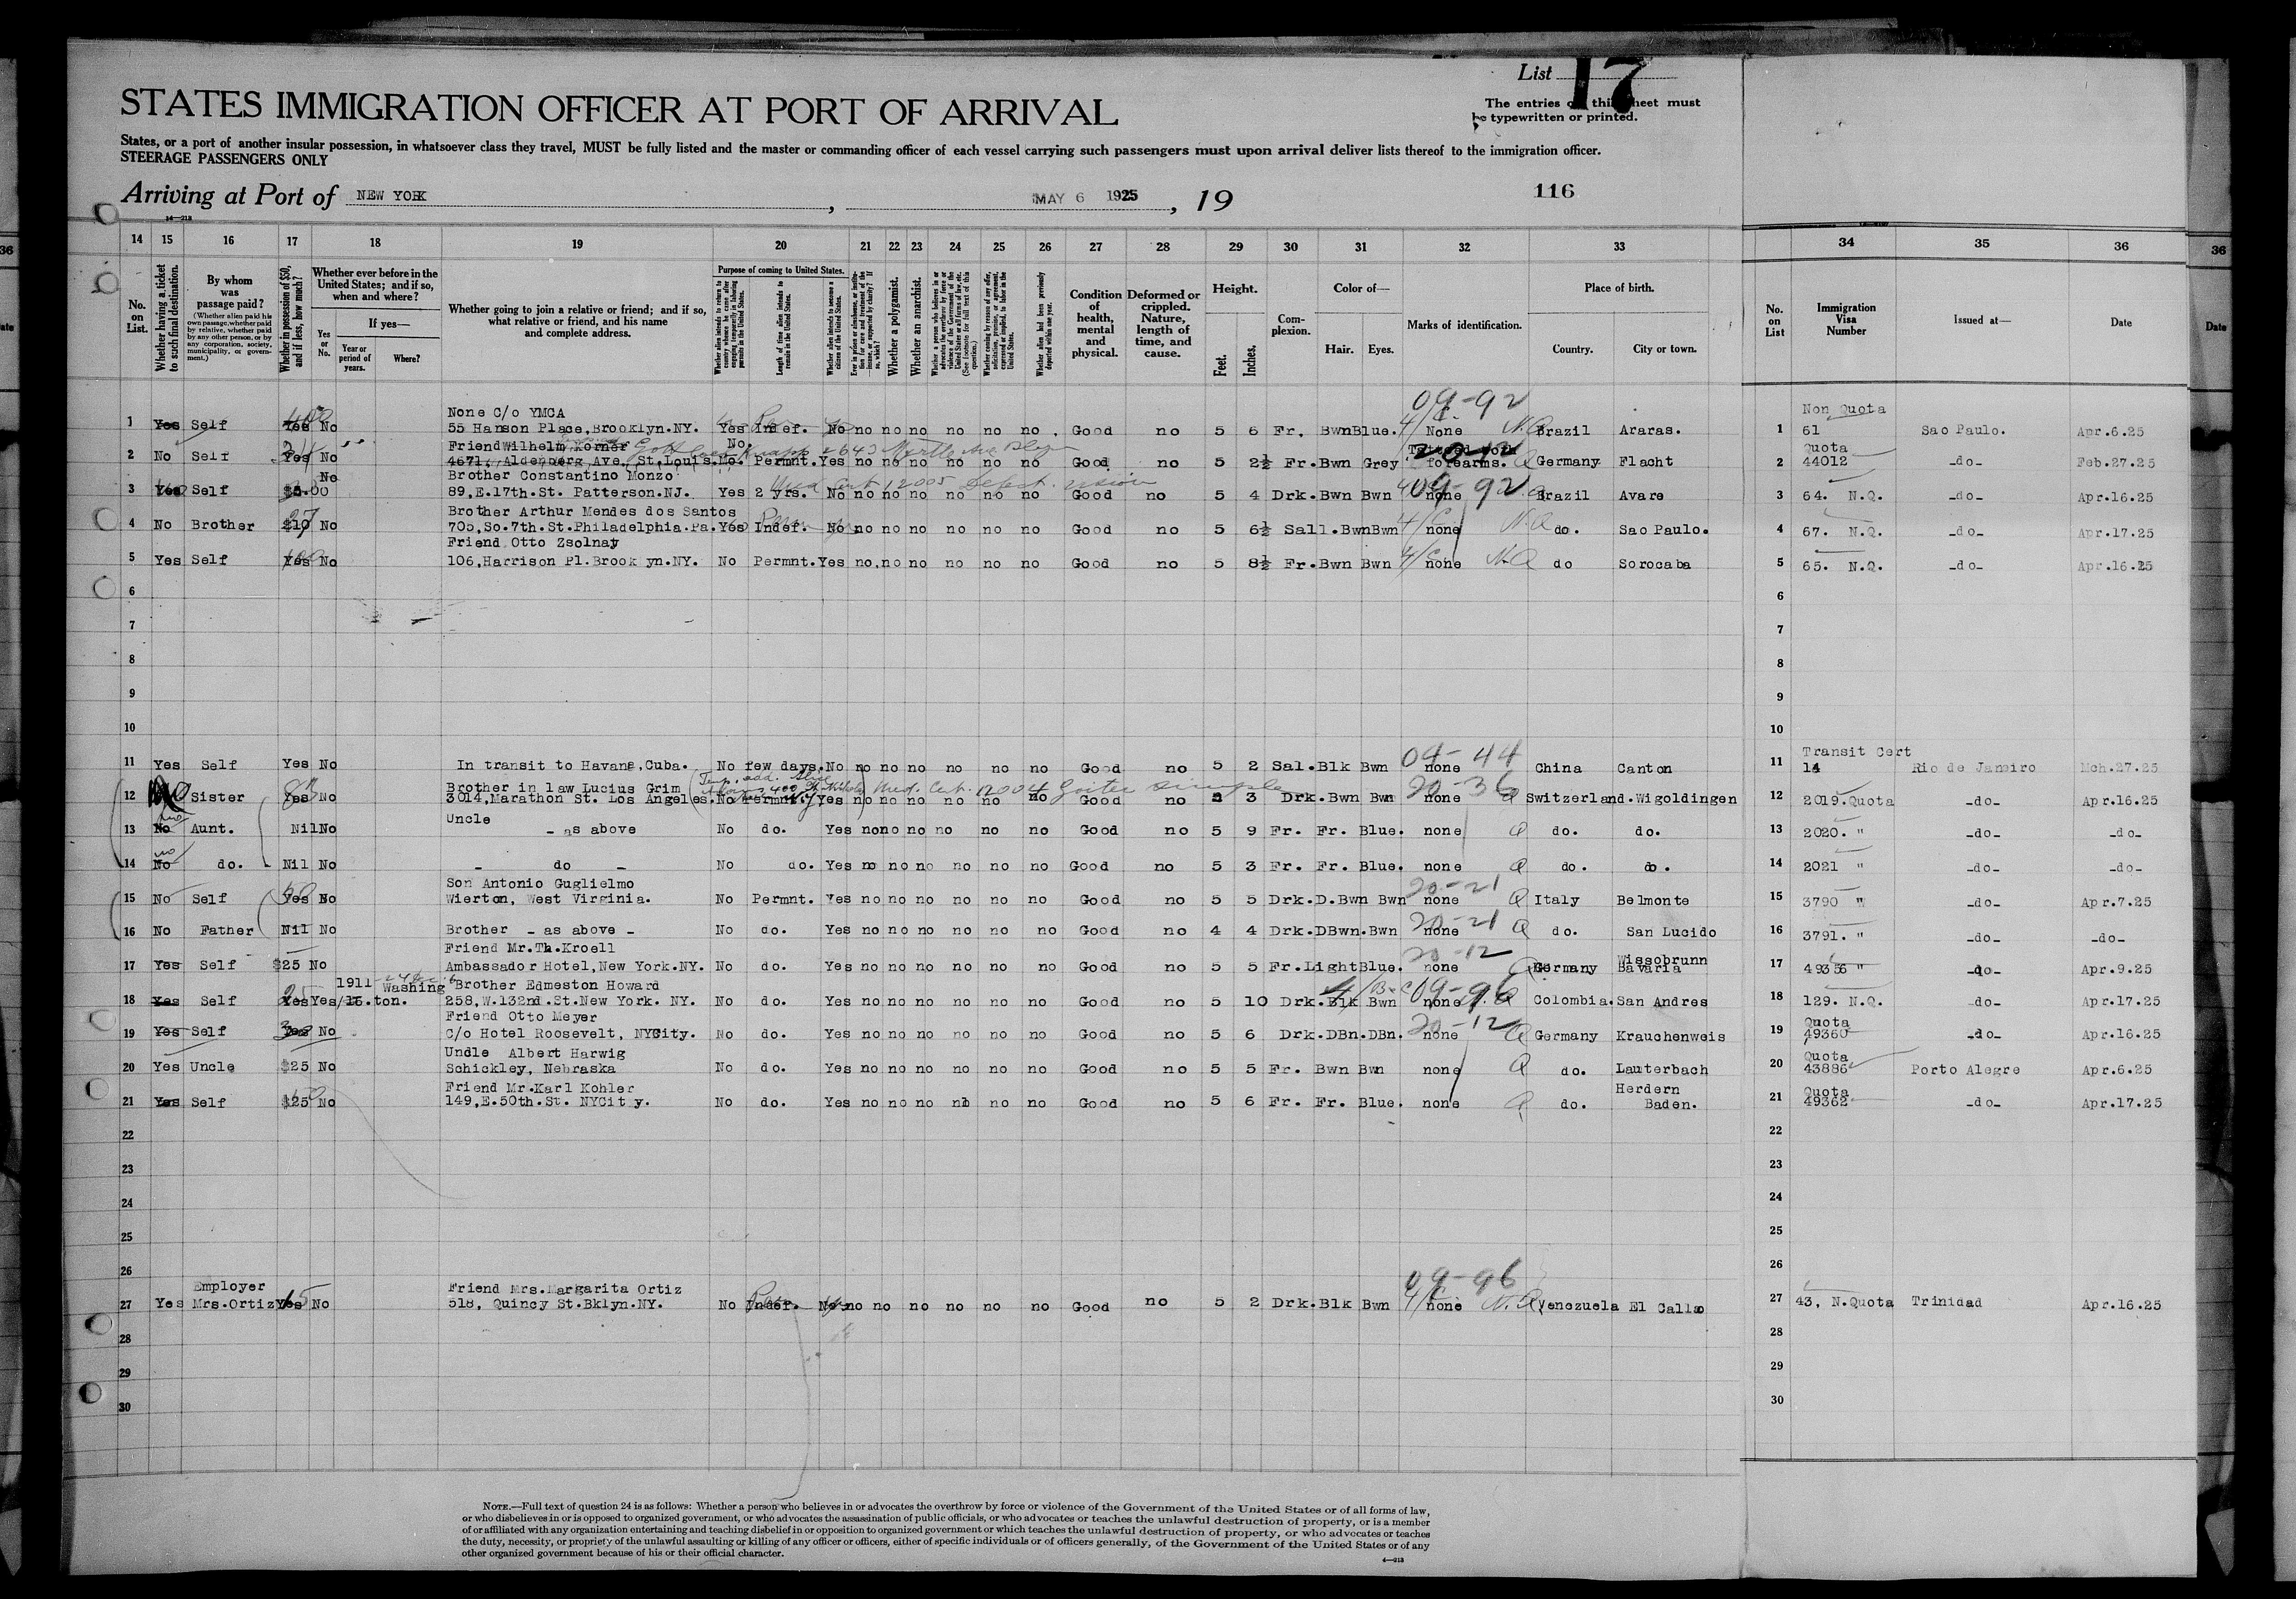 List 17
STATES IMMIGRATION OFFICER AT PORT OF ARRIVAL
The entries on this sheet must
be typewritten or printed.
States, or a port of another insular possession, in whatsoever class they travel, MUST be fully listed and the master or commanding officer of each vessel carrying such passengers must upon arrival deliver lists thereof to the immigration officer.
STEERAGE PASSENGERS ONLY
Arriving at Port of NEW YORK , MAY 6 1925 , 19
116
14 15 16 17 18 19 20 21 22 23 24 25 26 27 28 29 30 31 32 33 34 35 36
No. on List.
Whether having a ticket to such final destination.
By whom was passage paid?
(Whether alien paid his own passage, whether paid by relative, whether paid by any other person, or by any corporation, society, municipality, or government.)
Whether in possession of $50, and if less, how much?
Whether ever before in the United States; and if so, when and where?
Yes or No.
If yes—
Year or period of years.
Where?
Whether going to join a relative or friend; and if so, what relative or friend, and his name and complete address.
Purpose of coming to United States.
Length of time alien intends to remain in the United States.
Whether alien intends to become a citizen of the United States.
Whether a polygamist.
Whether an anarchist.
Condition of health, mental and physical.
Deformed or crippled. Nature, length of time, and cause.
Height.
Feet. Inches.
Complexion.
Color of—
Hair. Eyes.
Marks of identification.
Place of birth.
Country. City or town.
No. on List
Immigration Visa Number
Issued at—
Date
09-92
None C/o YMCA Non Quota
1 Yes Self Yes No 55 Hanson Place, Brooklyn.NY. Yes Indef. No no no no no no no Good no 5 6 Fr. Bwn Blue. None Brazil Araras. 1 61 Sao Paulo. Apr.6.25
Friend Wilhelm Korner No. Quota
2 No Self Yes No 4671, Aldenberg Ave. St.Louis.Mo. Permnt. Yes no no no no no no Good no 5 2½ Fr. Bwn Grey forearms. Germany Flacht 2 44012 -do- Feb.27.25
Brother Constantino Monzo Med Cert 12005 Defect. vision 09-92
3 Yes Self $5.00 No 89,E.17th.St. Patterson.NJ. Yes 2 yrs. No no no no no no no Good no 5 4 Drk. Bwn Bwn none Brazil Avare 3 64. N.Q. -do- Apr.16.25
Brother Arthur Mendes dos Santos
4 No Brother $10 No 705,So.7th.St.Philadelphia.Pa. Yes Indef. No no no no no no no Good no 5 6½ Sall. Bwn Bwn none N.Q do. Sao Paulo. 4 67. N.Q. -do- Apr.17.25
Friend Otto Zsolnay
5 Yes Self Yes No 106,Harrison Pl.Brook yn.NY. No Permnt. Yes no. no no no no no Good no 5 8½ Fr. Bwn Bwn none N.Q do Sorocaba 5 65. N.Q. -do- Apr.16.25
6 6
7 7
8 8
9 9
10 10
09-44 Transit Cert
11 Yes Self Yes No In transit to Havana,Cuba. No few days. No no no no no no no Good no 5 2 Sal. Blk Bwn none China Canton 11 14 Rio de Janeiro Mch.27.25
Brother in law Lucius Grim Med. Cert. 12004 Goiter simple 20-36
12 Sister Yes No 3014,Marathon St. Los Angeles. No Permnt. Yes no no no no no no Good no 5 3 Drk. Bwn Bwn none Q Switzerland. Wigoldingen 12 2019. Quota -do- Apr.16.25
Uncle
13 No Aunt. Nil No - as above No do. Yes no no no no no no Good no 5 9 Fr. Fr. Blue. none Q do. do. 13 2020. " -do- -do-
14 No do. Nil No - do - No do. Yes no no no no no no Good no 5 3 Fr. Fr. Blue. none Q do. do. 14 2021 " -do- -do-
Son Antonio Guglielmo 20-21
15 No Self Yes No Wierton, West Virginia. No Permnt. Yes no no no no no no Good no 5 5 Drk. D.Bwn Bwn none Q Italy Belmonte 15 3790 " -do- Apr.7.25
20-21
16 No Father Nil No Brother - as above - No do. Yes no no no no no no Good no 4 4 Drk. DBwn. Bwn none Q do. San Lucido 16 3791. " -do- -do-
Friend Mr.Th.Kroell 20-12 Wissobrunn
17 Yes Self $25 No Ambassador Hotel,New York.NY. No do. Yes no no no no no no Good no 5 5 Fr. Light Blue. none Germany Bavaria 17 49356 " -do- Apr.9.25
1911 Washing Brother Edmeston Howard 09-96
18 Yes Self Yes Yes /16. ton. 258,W.132nd.St.New York. NY. No do. Yes no no no no no no Good no 5 10 Drk. Blk Bwn none Colombia. San Andres 18 129. N.Q. -do- Apr.17.25
Friend Otto Meyer 20-12 Quota
19 Yes Self Yes No C/o Hotel Roosevelt, NYCity. No do. Yes no no no no no no Good no 5 6 Drk. DBn. DBn. none Q Germany Krauchenweis 19 49360 -do- Apr.16.25
Undle Albert Harwig Quota
20 Yes Uncle $25 No Schickley, Nebraska No do. Yes no no no no no no Good no 5 5 Fr. Bwn Bwn none Q do. Lauterbach 20 43886 Porto Alegre Apr.6.25
Friend Mr.Karl Kohler Herdern Quota
21 Yes Self $25 No 149,E.50th.St. NYCity. No do. Yes no no no no no no Good no 5 6 Fr. Fr. Blue. none Q do. Baden. 21 49362 -do- Apr.17.25
22 22
23 23
24 24
25 25
26 26
Employer Friend Mrs.Margarita Ortiz 09-96
27 Yes Mrs.Ortiz Yes No 518, Quincy St.Bklyn.NY. No Indef. No no no no no no no Good no 5 2 Drk. Blk Bwn none Venezuela El Callao 27 43, N.Quota Trinidad Apr.16.25
28 28
29 29
30 30
NOTE.—Full text of question 24 is as follows: Whether a person who believes in or advocates the overthrow by force or violence of the Government of the United States or of all forms of law,
or who disbelieves in or is opposed to organized government, or who advocates the assassination of public officials, or who advocates or teaches the unlawful destruction of property, or is a member
of or affiliated with any organization entertaining and teaching disbelief in or opposition to organized government or which teaches the unlawful destruction of property, or who advocates or teaches
the duty, necessity, or propriety of the unlawful assaulting or killing of any officer or officers, either of specific individuals or of officers generally, of the Government of the United States or of any
other organized government because of his or their official character.